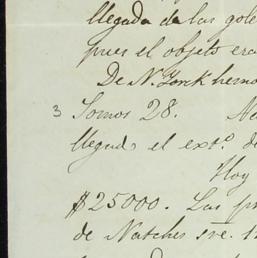 llegada de las gole
pues el objeto era
De N. York hemo
3 Somos 28. No
llegado el ext.º de
Hoy
$25000. Las pr
de Natches sre. 1